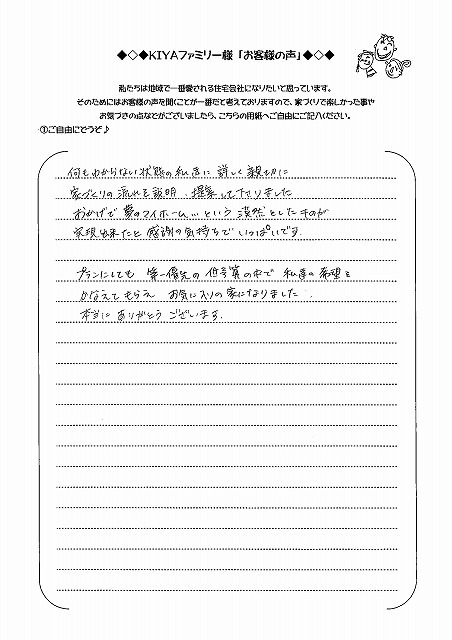 ◆◇◆KIYAファミリー様「お客様の声」◆◇◆
私たちは地域で一番愛される住宅会社になりたいと思っています。
そのためにはお客様の声を聞くことが一番だと考えておりますので、家づくりで楽しかった事や
お気づきの点などがございましたら、こちらの用紙へご自由にご記入ください。
①ご自由にどうぞ♪
何もわからない状態の私達に 詳しく親切に
家づくりの流れを説明、提案して下さりました
おかげで夢のマイホーム…という漠然としたものが
実現出来たと感謝の気持ちでいっぱいです.
プランにしても 第一優先の低予算の中で 私達の希望を
かなえてもらえ お気に入りの家になりました.
本当に ありがとう ございます.